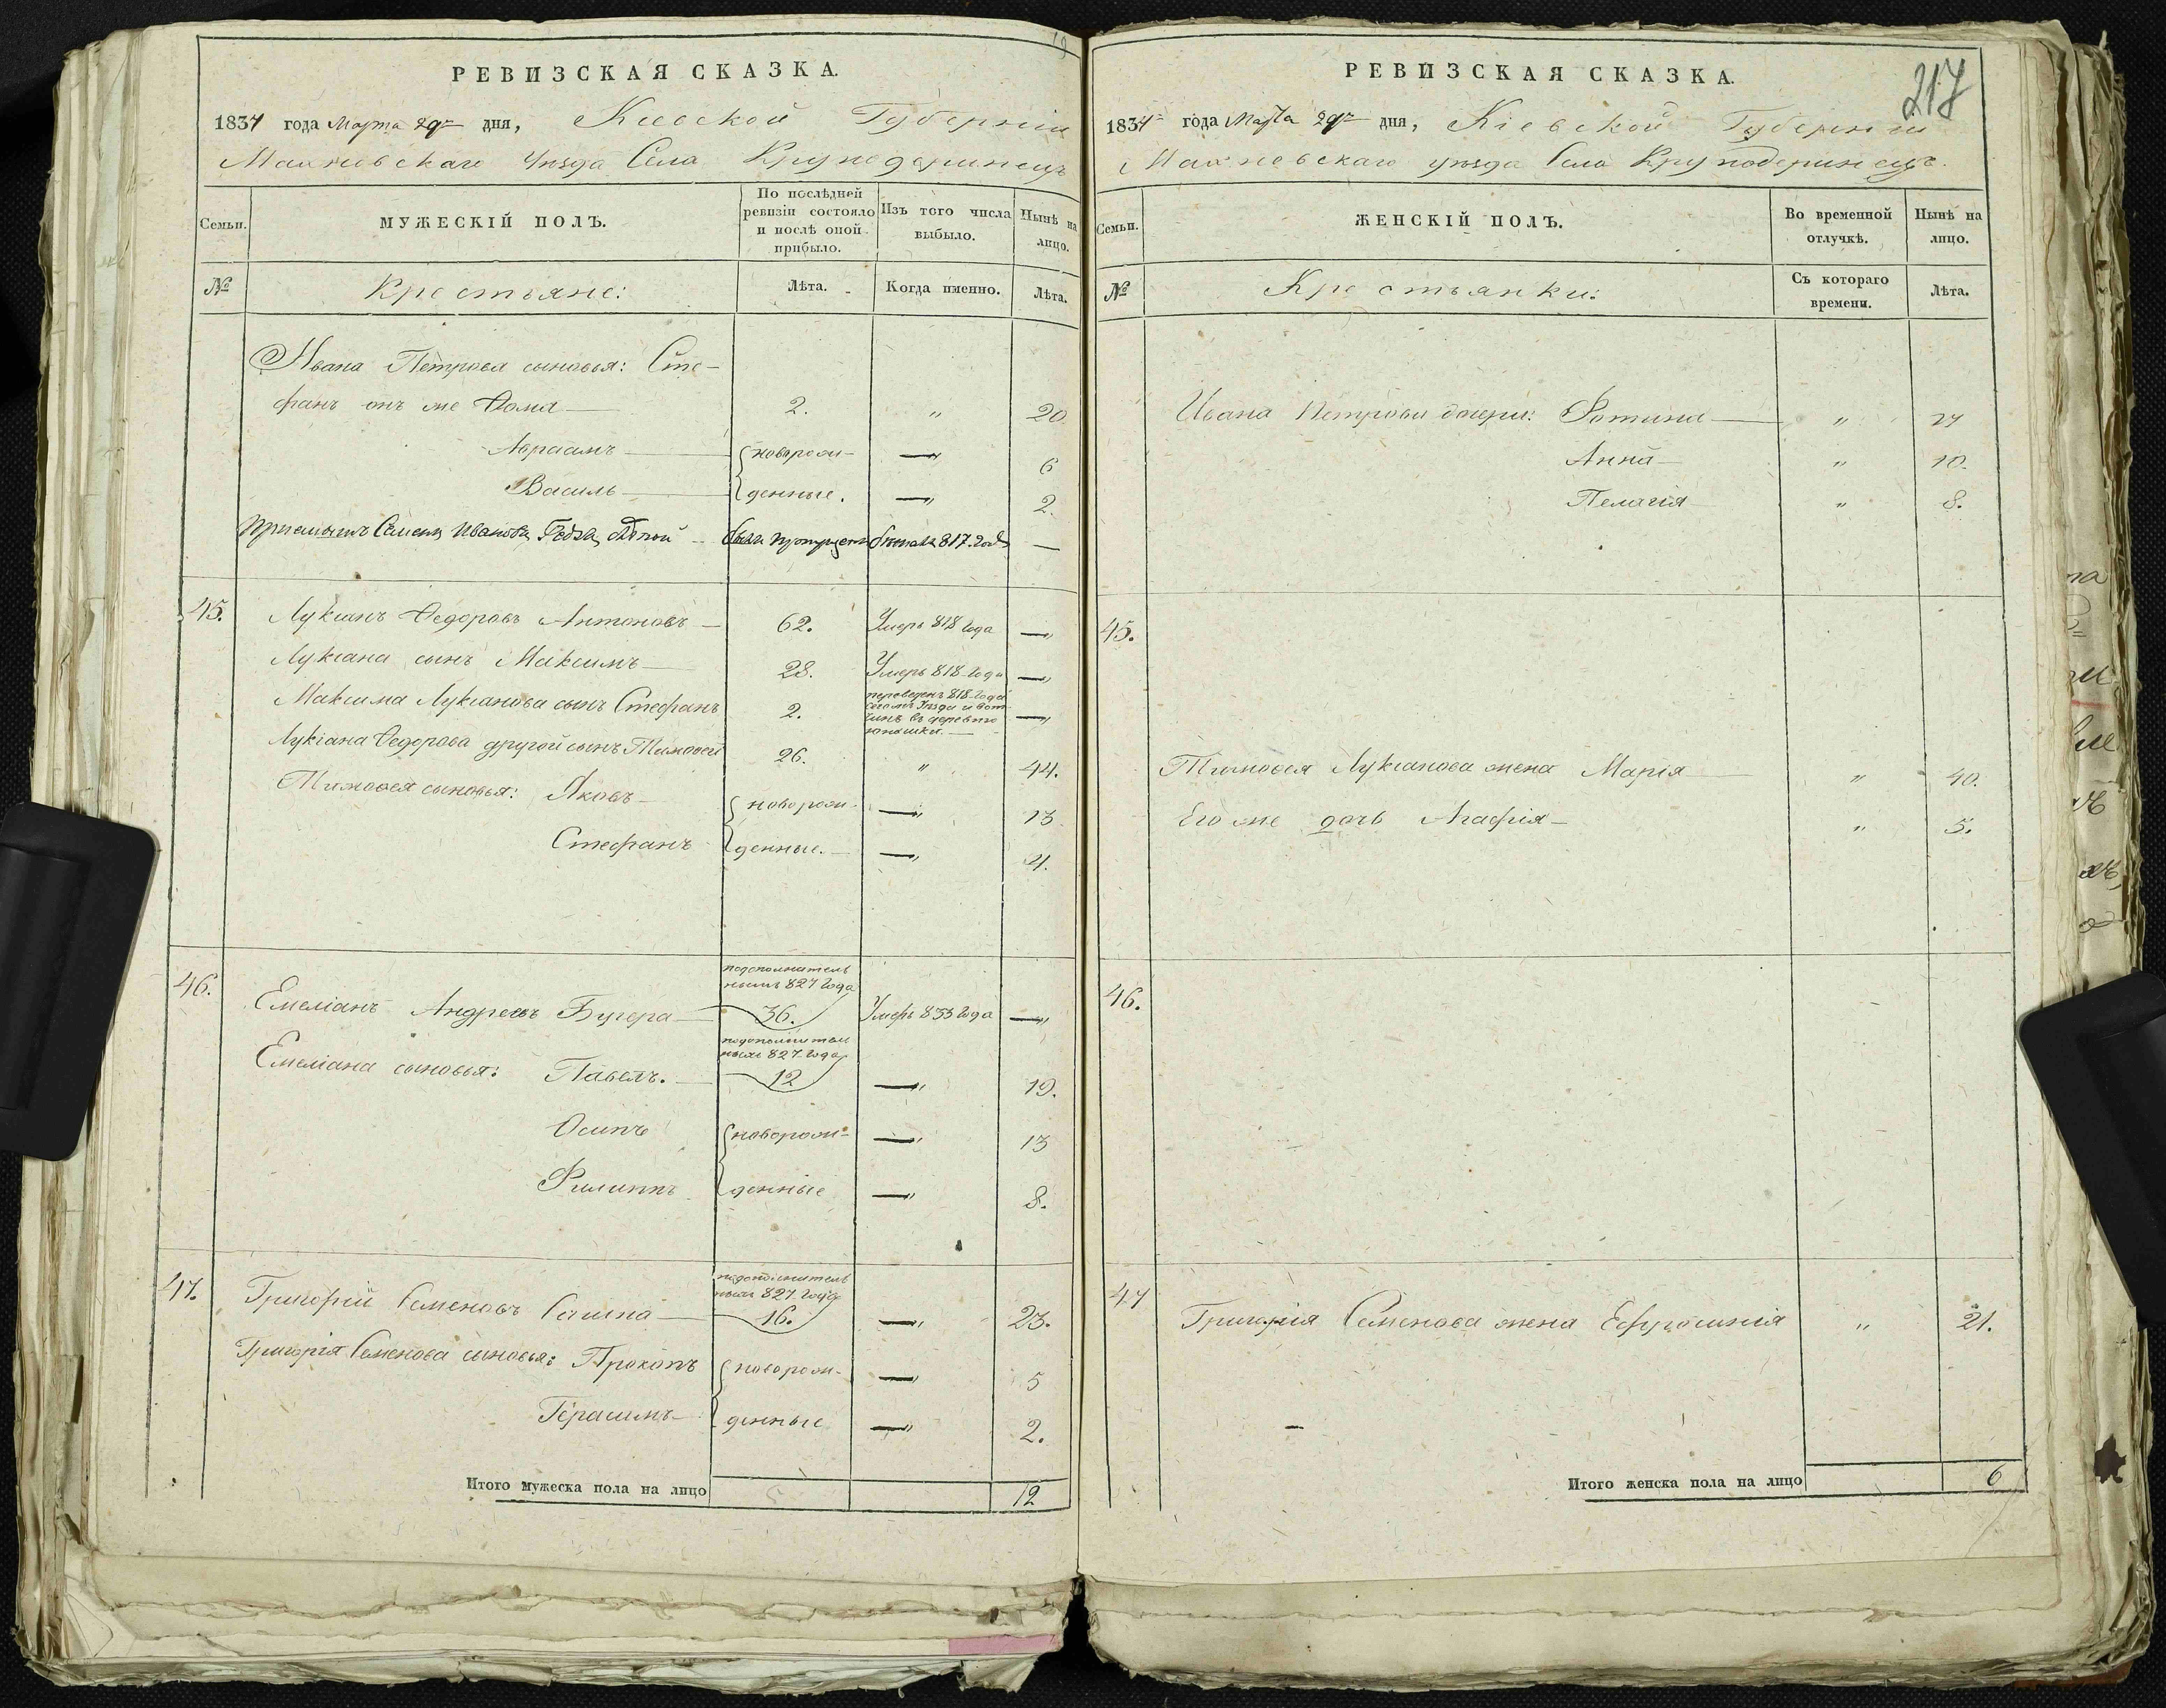 РЕВИЗСКАЯ СКАЗКА.
1834 года Марта 29го дня, Киевской Губернии
Махновскаго Уѣзда Села Круподеринецъ
Семьи. МУЖЕСКІЙ ПОЛЪ. По послѣдней ревизіи состояло и послѣ оной прибыло. Изъ того числа выбыло. Нынѣ на лицо.
№ Крестьяне: Лѣта. Когда именно. Лѣта.
Ивана Петрова сыновья: Сте-
фанъ онъ же Ѳома 2. " 20.
Авраамъ новорож- —" 6
Василь денные. —" 2.
Семенъ Ивановъ 817. года —
45. Лукіанъ Ѳедоровъ Антоновъ — 62. Умеръ 818 года —"
Лукіана сынъ Максимъ — 28. Умеръ 818 года —"
Максима Лукіанова сынъ Стефанъ 2. переведенъ 818 года
въ деревню
—"
Лукіана Ѳедорова другой сынъ Тимоѳей 26. " 44.
Тимоѳея сыновья: Яковъ — новорож- —" 13.
Стефанъ денные. — —" 4.
46. подополнитель
нымъ 827 года
Емеліанъ Андреевъ Бугера — 36. Умеръ 833 года —"
подополнитель
нымъ 827 года
Емеліана сыновья: Павелъ. — 12 —" 19.
Осипъ новорож- —" 13
Филиппъ денные —" 8.
47. подополнитель
нымъ 827. года
Григорій Семеновъ — 16. —" 23.
Григорія Семенова сыновья: Прокопъ новорож- —" 5
Герасимъ денные —" 2.
Итого мужеска пола на лицо 12
217
РЕВИЗСКАЯ СКАЗКА.
1834 года Марта 29го дня, Кіевской Губерніи
Махновскаго уѣзда Села Круподеринецъ.
Семьи. ЖЕНСКІЙ ПОЛЪ. Во временной отлучкѣ. Нынѣ на лицо.
№ Крестьянки: Съ котораго времени. Лѣта.
Ивана Петрова дочери: Фотина — " 24
Анна — " 10.
Пелагія — " 8.
45.
Тимоѳея Лукіанова жена Марія " 40.
Его же дочь Агафія — " 5.
46.
47
Григорія Семенова жена Ефросинія " 21.
Итого женска пола на лицо 6